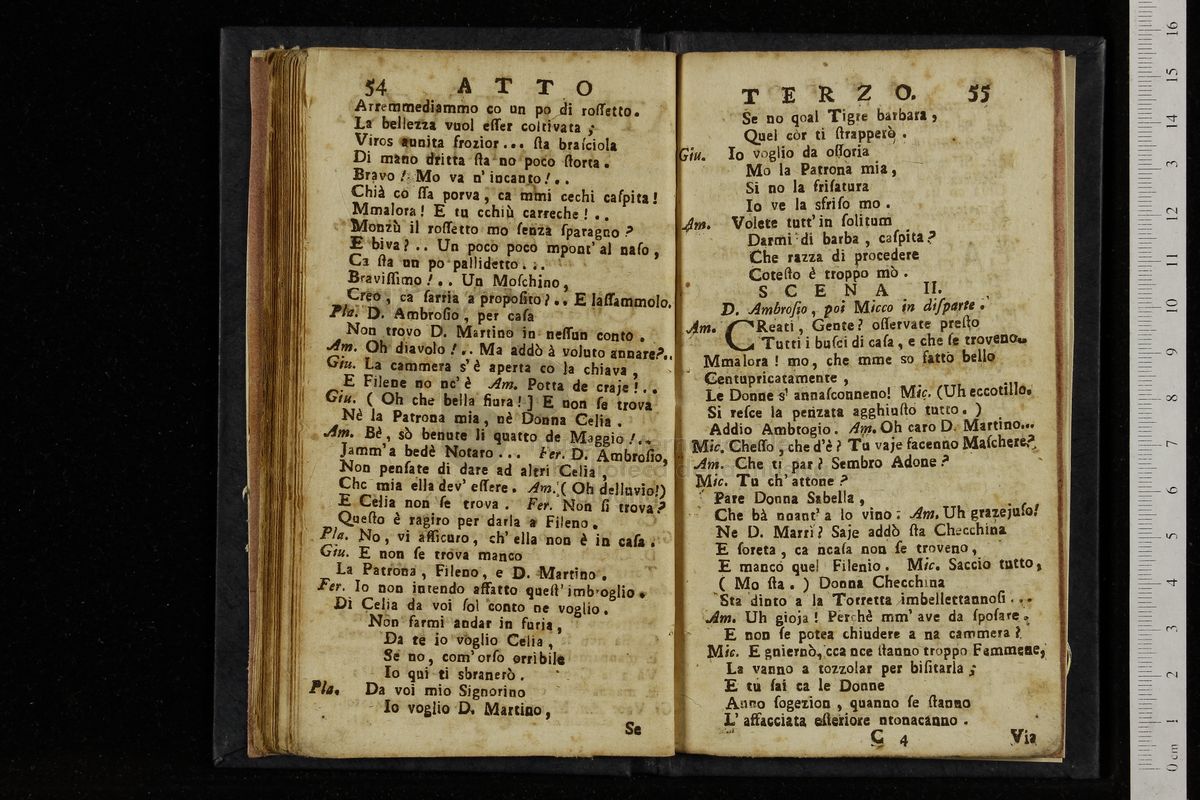 54 ATTO
Arremmediammo co un po di roſſetto.
La bellezza vuol eſſer coltivata ;
Viros aunita frozior... ſta braſciola
Di mano dritta ſta no poco ſtorta.
Bravo! Mo va n' incanto!..
Chià co ſſa porva, ca mmi cechi caſpita!
Mmalora! E tu cchiù carreche!..
Monzù il roſſetto mo ſenza ſparagno?
E biva?.. Un poco poco mpont' al naſo,
Ca ſta un po pallidetto...
Braviſſimo!.. Un Moſchino,
Creo, ca ſarria a propoſito?.. E laſſammolo.
Pla. D. Ambroſio, per caſa
Non trovo D. Martino in neſſun conto.
Am. Oh diavolo!.. Ma addò à voluto annare?..
Giu. La cammera s' è aperta co la chiava,
E Filene no nc' è Am. Potta de craje!..
Giu. ( Oh che bella fiura! ] E non ſe trova
Nè la Patrona mia, nè Donna Celia.
Am. Bè, sò benute li quatto de Maggio!..
Jamm'a bedè Notaro... Fer. D. Ambroſio,
Non penſate di dare ad altri Celia,
Che mia ella dev' eſſere. Am. ( Oh delluvio!)
E Celia non ſe trova. Fer. Non ſi trova?
Queſto è ragiro per darla a Fileno.
Pla. No, vi aſſicuro, ch' ella non è in caſa.
Giu. E non ſe trova manco
La Patrona, Fileno, e D. Martino.
Fer. Io non intendo affatto queſt' imbroglio.
Di Celia da voi ſol conto ne voglio.
Non farmi andar in furia,
Da te io voglio Celia,
Se no, com' orſo orribile
Io quì ti sbranerò.
Pla. Da voi mio Signorino
Io voglio D. Martino,
Se
TERZO. 55
Se no qoal Tigre barbara,
Quel còr ti ſtrapperò.
Giu. Io voglio da oſſoria
Mo la Patrona mia,
Si no la friſatura
Io ve la sfriſo mo.
Am. Volete tutt' in ſolitum
Darmi di barba, caſpita?
Che razza di procedere
Coteſto è troppo mò.
SCENA II.
D. Ambroſio, poi Micco in diſparte.
Am. CReati, Gente? oſſervate preſto
Tutti i buſci di caſa, e che ſe troveno..
Mmalora! mo, che mme so fatto bello
Centupricatamente,
Le Donne s' annaſconneno! Mic. (Uh eccotillo.
Si reſce la penzata agghiuſto tutto. )
Addio Ambrogio. Am. Oh caro D. Martino...
Mic. Cheſſo, che d'è? Tu vaje facenno Maſchere?
Am. Che ti par? Sembro Adone?
Mic. Tu ch' attone?
Pare Donna Sabella,
Che bà nnant' a lo vino: Am. Uh grazejuſo!
Ne D. Marrì? Saje addò ſta Checchina
E ſoreta, ca ncaſa non ſe troveno,
E manco quel Filenio. Mic. Saccio tutto,
( Mo ſta. ) Donna Checchina
Sta dinto a la Torretta imbellettannoſi...
Am. Uh gioja! Perchè mm' ave da ſpoſare,
E non ſe potea chiudere a na cammera?
Mic. E gniernò, cca nce ſtanno troppo Femmene,
La vanno a tozzolar per biſitarla;
E tu ſai ca le Donne
Anno ſogezion, quanno ſe ſtanno
L' affacciata eſteriore ntonacanno.
C 4 Via